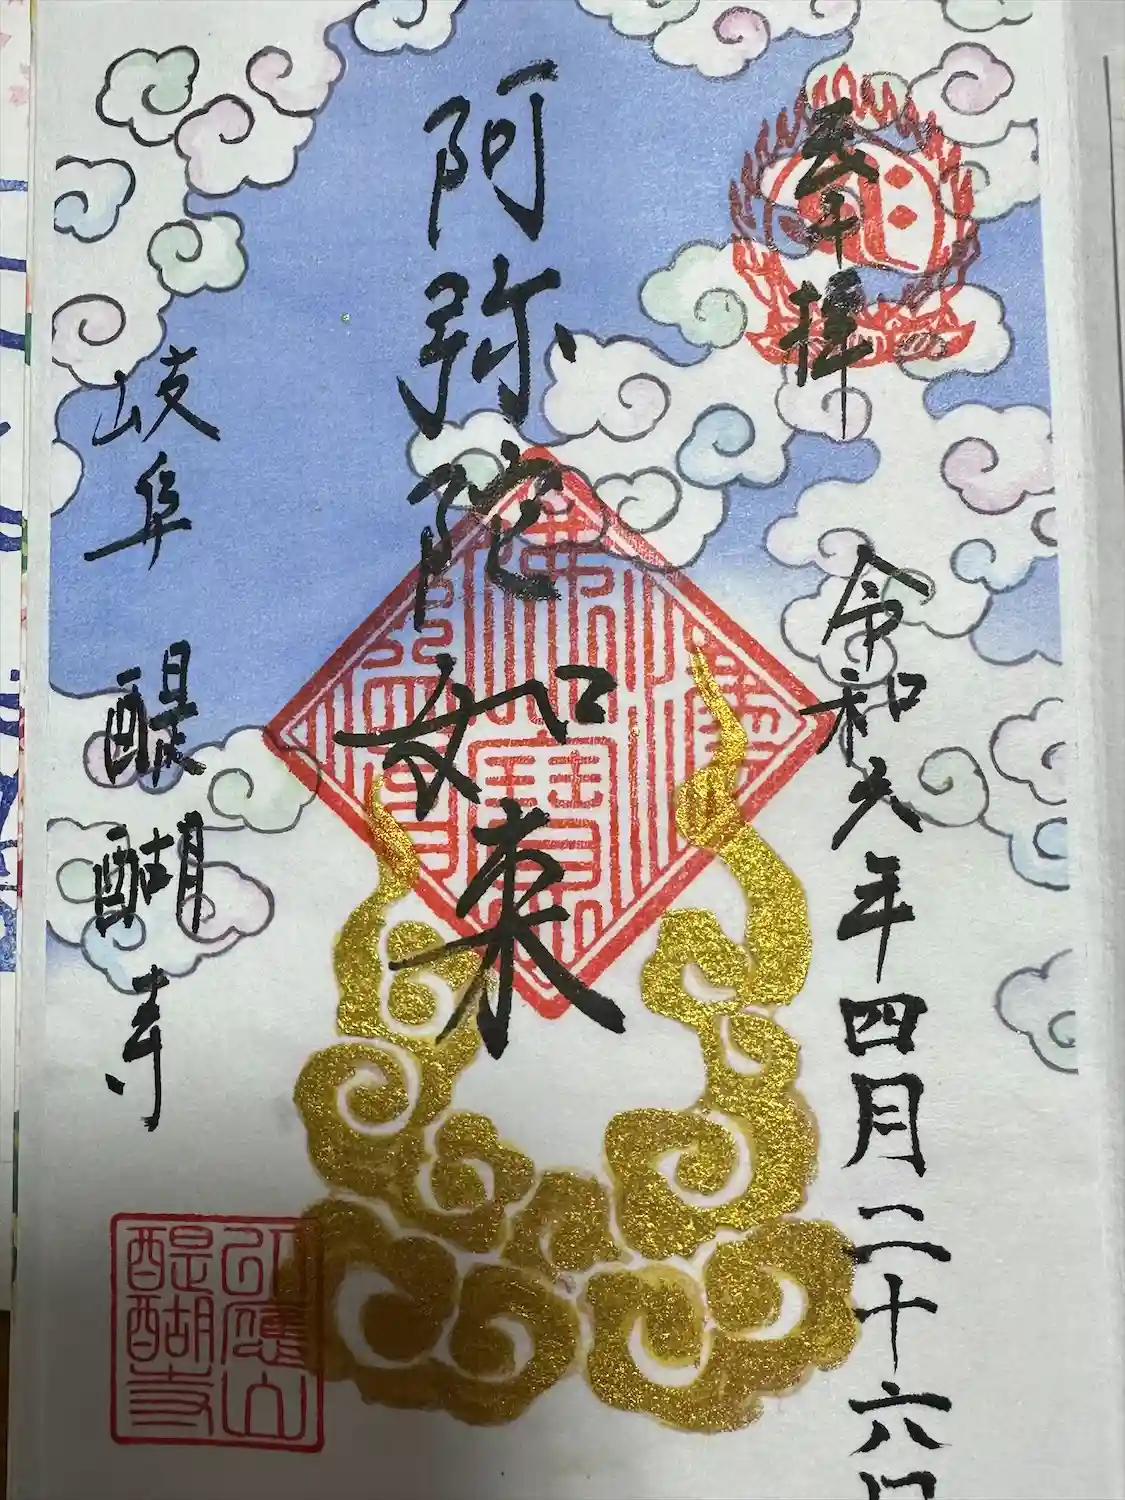 奉拝
令和六年四月二十六日
阿弥陀如来
岐阜
醍醐寺
佛法僧寶
醍醐寺